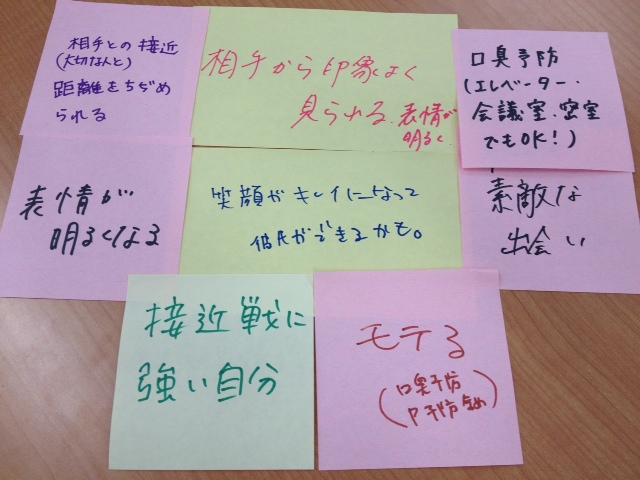 相手との接近
(大切な人と)
距離をちぢめ
られる
相手から印象よく
見られる、表情が
明るく
口臭予防
(エレベーター・
会議室、密室
でもOK!)
表情が
明るくなる
笑顔がキレイになって
彼氏ができるかも。
素敵な
出会い
接近戦に
強い自分
モテる
(口臭予防
予防含め)